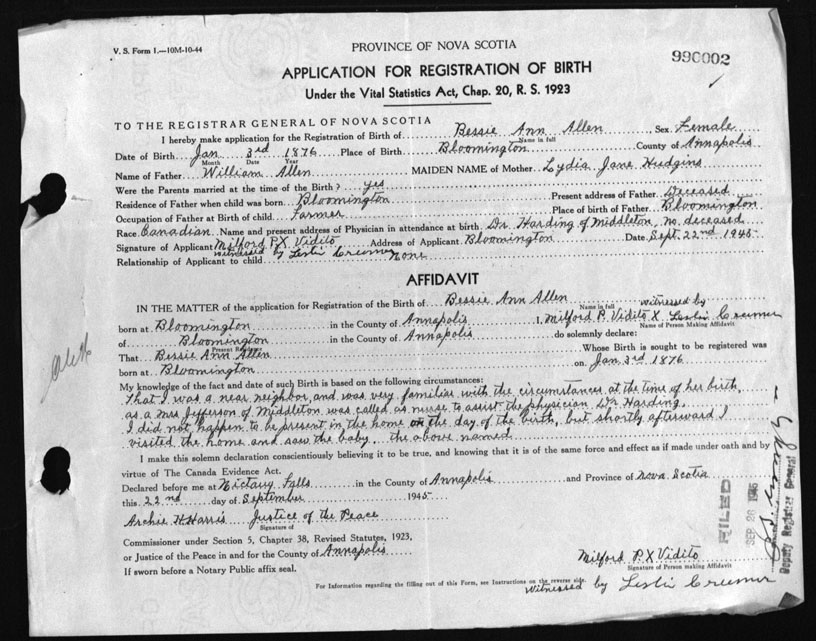 V. S. Form 1.—10M-10-44
PROVINCE OF NOVA SCOTIA
990002
APPLICATION FOR REGISTRATION OF BIRTH
Under the Vital Statistics Act, Chap. 20, R. S. 1923
TO THE REGISTRAR GENERAL OF NOVA SCOTIA
I hereby make application for the Registration of Birth of Bessie Ann Allen Sex Female
Name in full
Date of Birth Jan 3rd 1876 Place of Birth Bloomington County of Annapolis
Month Date Year
Name of Father William Allen MAIDEN NAME of Mother Lydia Jane Hudgins
Were the Parents married at the time of the Birth? yes
Residence of Father when child was born Bloomington Present address of Father Deceased
Occupation of Father at Birth of child Farmer Place of birth of Father Bloomington
Race Canadian Name and present address of Physician in attendance at birth Dr Harding of Middleton, no deceased
Signature of Applicant Milford P. X Vidito Address of Applicant Bloomington Date Sept. 22nd 1945
witnessed by Leslie Creemer
Relationship of Applicant to child None
AFFIDAVIT
IN THE MATTER of the application for Registration of the Birth of Bessie Ann Allen
Name in full
witnessed by
born at Bloomington in the County of Annapolis I, Milford P. Vidito X Leslie Creemer
Name of Person Making Affidavit
of Bloomington in the County of Annapolis do solemnly declare:
Present Residence
That Bessie Ann Allen Whose Birth is sought to be registered was
born at Bloomington on Jan 3rd 1876
My knowledge of the fact and date of such Birth is based on the following circumstances:
That I was a near neighbor, and was very familiar with the circumstances at the time of her birth,
as a Mrs Jefferson of Middleton was called as nurse to assist the physician Dr. Harding.
I did not happen to be present in the home on the day of the birth, but shortly afterward I
visited the home and saw the baby the above named
I make this solemn declaration conscientiously believing it to be true, and knowing that it is of the same force and effect as if made under oath and by
virtue of The Canada Evidence Act.
Declared before me at Nictaux Falls in the County of Annapolis and Province of Nova Scotia
this 22nd day of September 1945
Archie H Harris Justice of the Peace
Signature of
Commissioner under Section 5, Chapter 38, Revised Statutes, 1923,
or Justice of the Peace in and for the County of Annapolis
If sworn before a Notary Public affix seal.
Milford P. X Vidito
Signature of Person making Affidavit
For Information regarding the filling out of this Form, see Instructions on the reverse side.
Witnessed by Leslie Creemer
FILED
SEP 28 1945
Deputy Registrar General